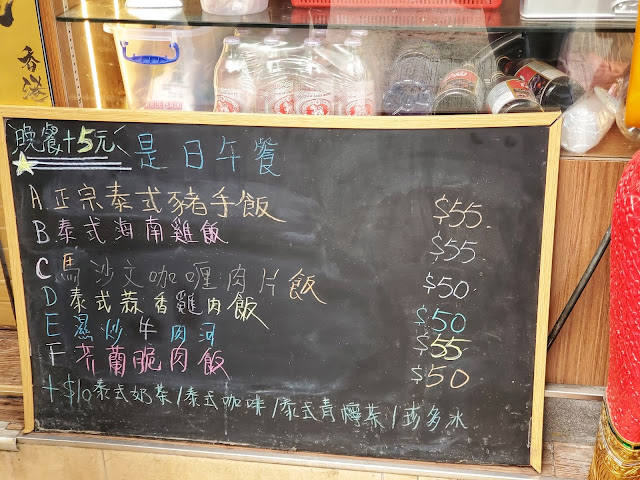 香港
晚餐+5元
是日午餐
A 正宗泰式豬手飯 $55
B 泰式海南雞飯 $55
C 馬沙文咖喱肉片飯 $50
D 泰式蒜香雞肉飯 $50
E 濕炒牛肉河 $55
F 芥蘭脆肉飯 $50
+$10 泰式奶茶/泰式咖啡/泰式青檸茶/珍多冰